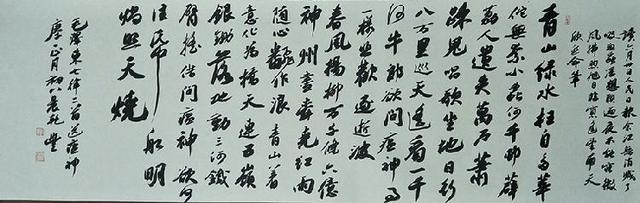 读六月三十日人民日报余江县消灭了
血吸虫浮想联翩夜不能寐微
风拂煦旭日临窗遥望南天
欣然命笔
青山绿水枉自多华
佗無奈小虫何千邨薜
荔人遗矢萬户萧
疏鬼唱歌坐地日行
八万里巡天遥看一千
河牛郎欲问瘟神事
一样悲歡逐逝波
春风楊柳万千条六億
神州尽舜尧红雨
随心翻作浪青山着
意化为桥天连五嶺
银锄落地动三河铁
臂摇借问瘟神欲何
往纸船明
烛照天烧
毛泽东七律二首送瘟神
正月初八